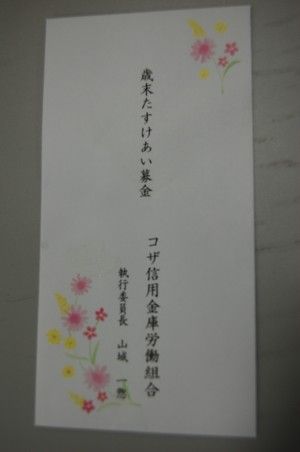 歳末たすけあい募金
コザ信用金庫労働組合
執行委員長 山城 一